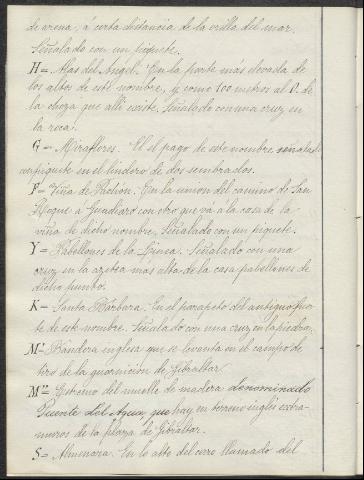 de arena, á corta distancia de la orilla del mar.
Señalado con un piquete.
H = Alas del Angel. En la parte más elevada de
los altos de este nombre, y como 100 metros al O. de
la choza que allí existe. Señalado con una cruz en
la roca.
G = Miraflores. En el pago de este nombre señalado
con piquete en el lindero de dos sembrados.
F = Viña de En la union del camino de San
Roque á Guadiaro con otro que vá á la casa de la
viña de dicho nombre. Señalado con un piquete.
Y = Pabellones de la Linea. Señalado con una
cruz en la azotea más alta de la casa pabellones de
dicho punto.
K = Santa Bárbara. En el parapeto del antiguo fuer-
te de este nombre. Señalado con una cruz en la piedra.
M' = Bandera inglesa que se levanta en el
de la guarnicion de Gibraltar.
M'' = Estremo del muelle de madera denominado
Puente del Agua, que hay en terreno inglés extra-
muros de la plaza de Gibraltar.
S = Almenara. En lo alto del cerro llamado del